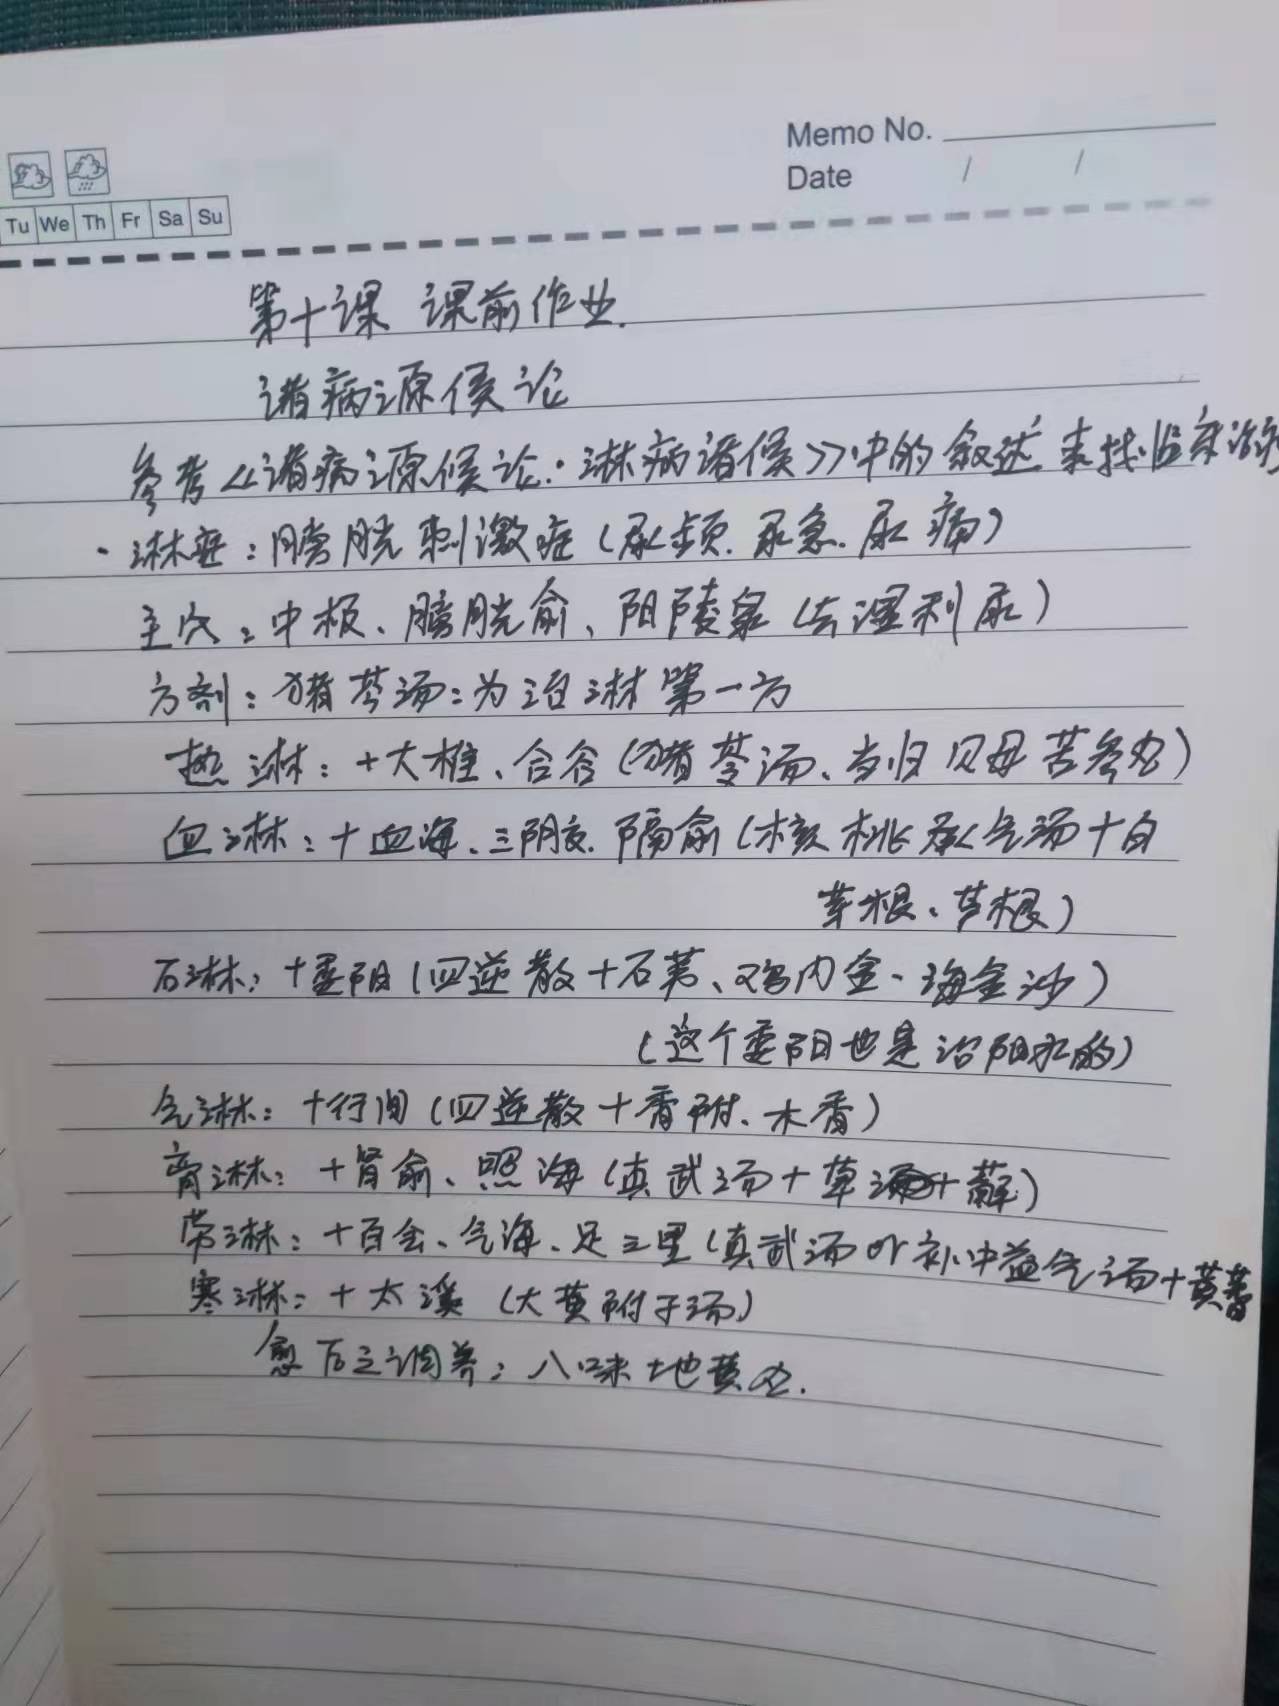 Memo No.
Date / /
Tu We Th Fr Sa Su
第十课 课前作业.
诸病源候论
参考《诸病源候论·淋病诸候》中的叙述 来找临床治
·淋症:膀胱刺激症(尿频.尿急.尿痛)
主穴:中极、膀胱俞、阴陵泉(去湿利尿)
方剂:猪苓汤:为治淋第一方
热淋:+大椎、合谷(猪苓汤、当归贝母苦参丸)
血淋:+血海、三阴交.隔俞(核桃承气汤+白
茅根、芦根)
石淋:+委阳(四逆散+石苇、鸡内金、海金沙)
(这个委阳也是治阳水的)
气淋:+行间(四逆散+香附、木香)
膏淋:+肾俞、照海(真武汤+萆薢)
劳淋:+百会、气海、足三里(真武汤or补中益气汤+黄
寒淋:+太溪(大黄附子汤)
愈后之调养:八味地黄丸.